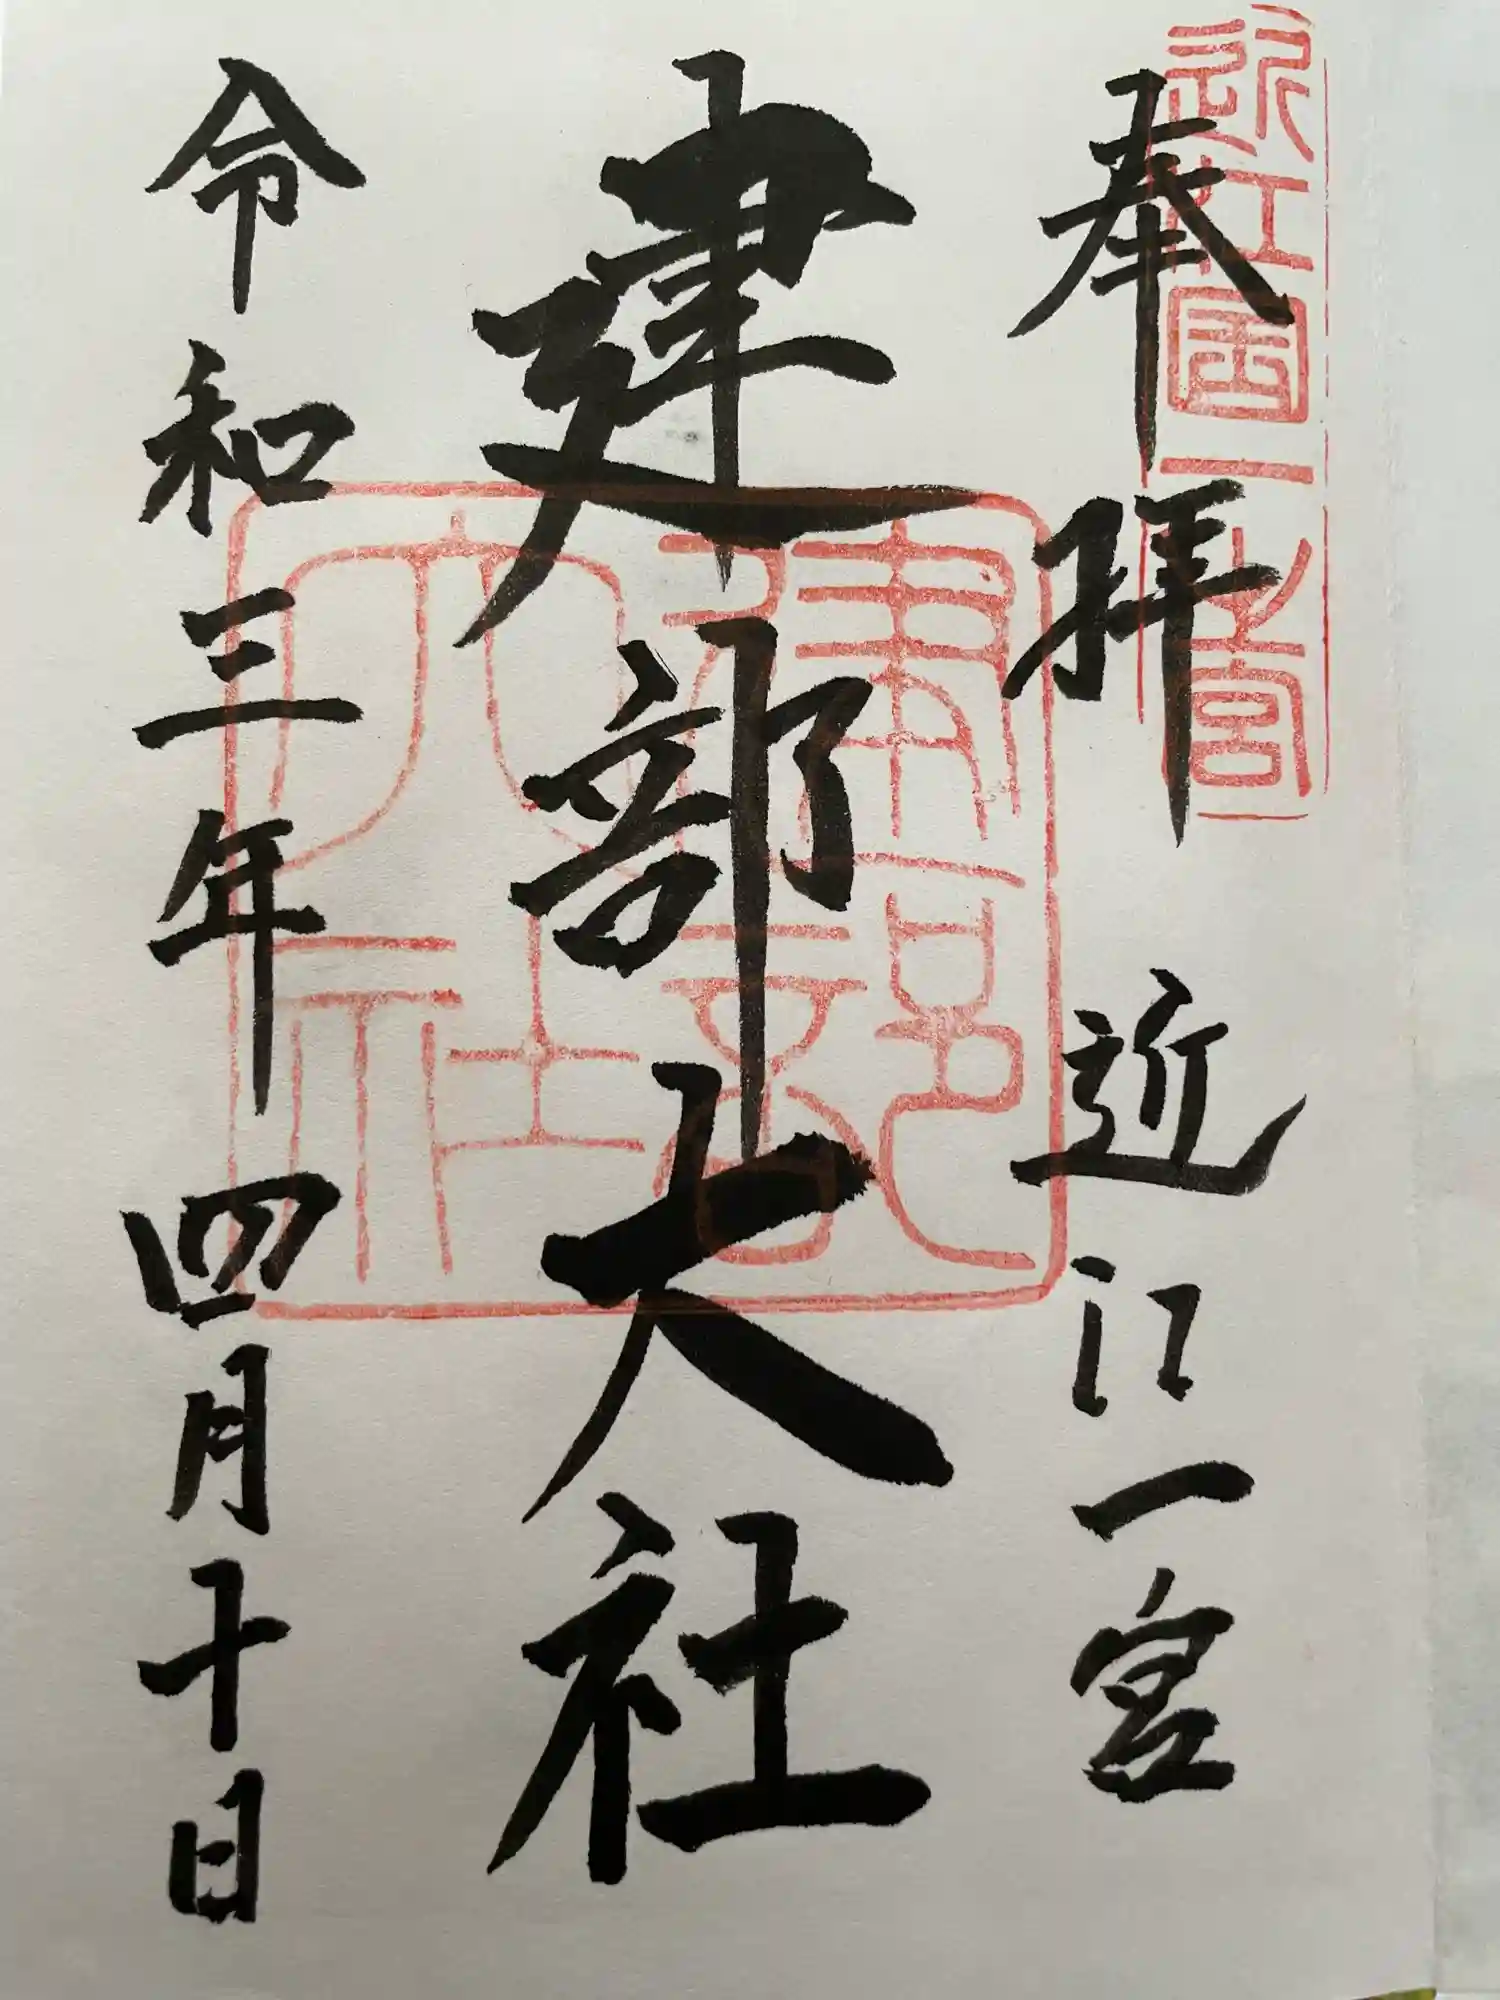 奉拝 近江一宮
近江国一之宮
建部大社
建部大社之記
令和三年四月十日